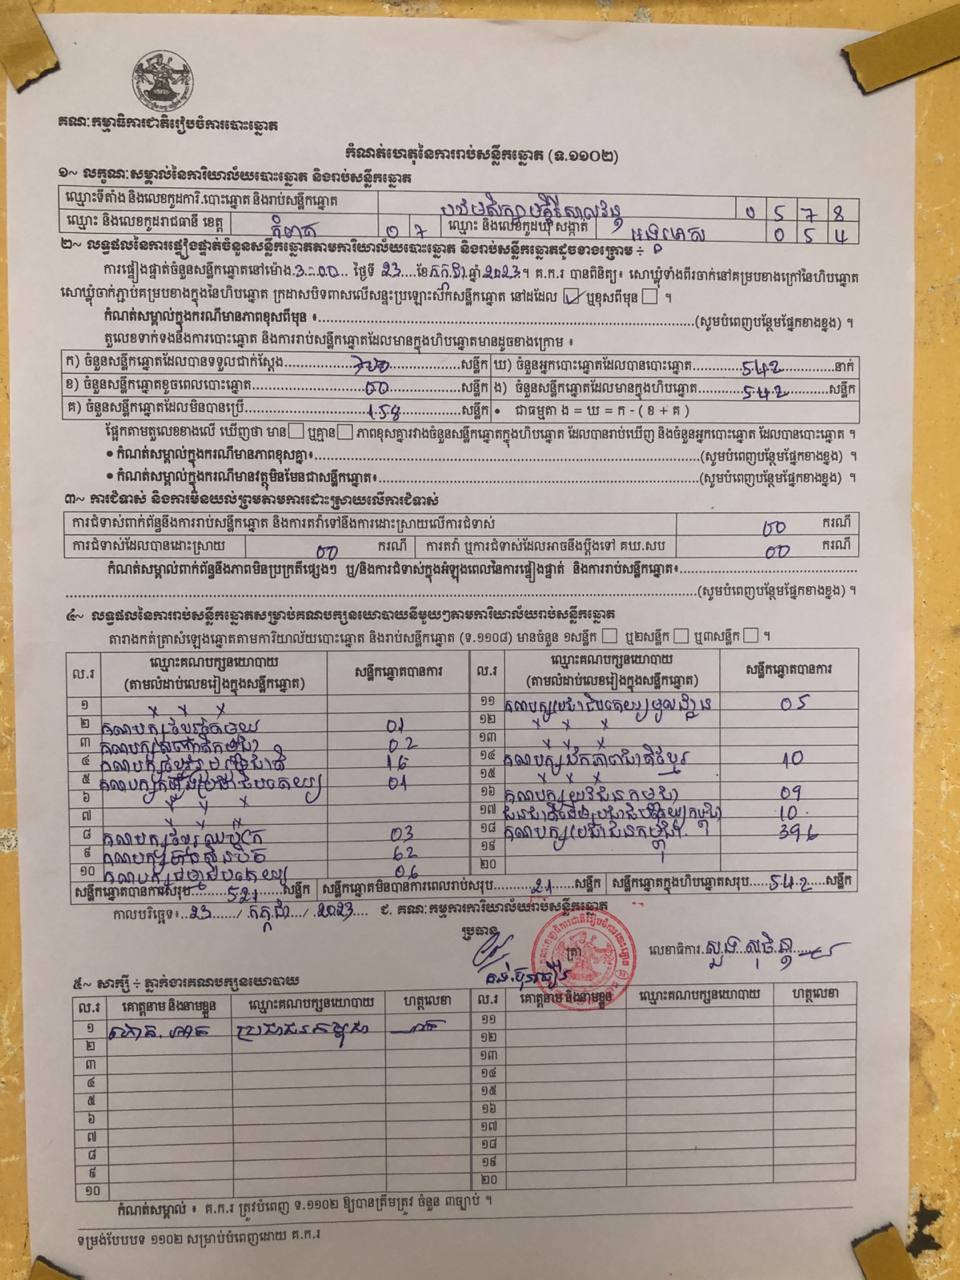 គណៈកម្មាធិការជាតិរៀបចំការបោះឆ្នោត
កំណត់ហេតុនៃការរាប់សន្លឹកឆ្នោត (ទ.១១០២)
១~ លក្ខណៈសម្គាល់នៃការិយាល័យបោះឆ្នោត និងរាប់សន្លឹកឆ្នោត
ឈ្មោះទីតាំង និងលេខកូដការិ.បោះឆ្នោត និងរាប់សន្លឹកឆ្នោត 0 5 7 8
ឈ្មោះ និងលេខកូដរាជធានី ខេត្ត កំពត 0 7 ឈ្មោះ និងលេខកូដឃុំ សង្កាត់ 0 5 4
២~ លទ្ធផលនៃការផ្ទៀងផ្ទាត់ចំនួនសន្លឹកឆ្នោតតាមការិយាល័យបោះឆ្នោត និងរាប់សន្លឹកឆ្នោតដូចខាងក្រោម ÷
ការផ្ទៀងផ្ទាត់ចំនួនសន្លឹកឆ្នោតនៅម៉ោង 3:00 ថ្ងៃទី 23 ខែ កក្កដា ឆ្នាំ 2023 ។ គ.ក.រ បានពិនិត្យ៖ សោឃ្លុំទាំងពីរចាក់នៅគម្របខាងក្រៅនៃហិបឆ្នោត
សោឃ្លុំចាក់ភ្ជាប់គម្របខាងក្នុងនៃហិបឆ្នោត ក្រដាសបិទពាសលើសន្ទះប្រឡោះស៊កសន្លឹកឆ្នោត នៅដដែល ☑ ឬខុសពីមុន ☐ ។
កំណត់សម្គាល់ក្នុងករណីមានភាពខុសពីមុន ៖ (សូមបំពេញបន្ថែមផ្នែកខាងខ្នង) ។
តួលេខទាក់ទងនឹងការបោះឆ្នោត និងការរាប់សន្លឹកឆ្នោតដែលមានក្នុងហិបឆ្នោតមានដូចខាងក្រោម ៖
ក) ចំនួនសន្លឹកឆ្នោតដែលបានទទួលជាក់ស្តែង 700 សន្លឹក ឃ) ចំនួនអ្នកបោះឆ្នោតដែលបានបោះឆ្នោត 542 នាក់
ខ) ចំនួនសន្លឹកឆ្នោតខូចពេលបោះឆ្នោត 00 សន្លឹក ង) ចំនួនសន្លឹកឆ្នោតដែលមានក្នុងហិបឆ្នោត 542 សន្លឹក
គ) ចំនួនសន្លឹកឆ្នោតដែលមិនបានប្រើ 158 សន្លឹក • ជាធម្មតា ង = ឃ = ក - ( ខ + គ )
ផ្អែកតាមតួលេខខាងលើ ឃើញថា មាន ☐ ឬគ្មាន ☐ ភាពខុសគ្នារវាងចំនួនសន្លឹកឆ្នោតក្នុងហិបឆ្នោត ដែលបានរាប់ឃើញ និងចំនួនអ្នកបោះឆ្នោត ដែលបានបោះឆ្នោត ។
• កំណត់សម្គាល់ក្នុងករណីមានភាពខុសគ្នា៖ (សូមបំពេញបន្ថែមផ្នែកខាងខ្នង) ។
• កំណត់សម្គាល់ក្នុងករណីមានវត្ថុមិនមែនជាសន្លឹកឆ្នោត៖ (សូមបំពេញបន្ថែមផ្នែកខាងខ្នង) ។
៣~ ការជំទាស់ និងការមិនយល់ព្រមតាមការដោះស្រាយលើការជំទាស់
ការជំទាស់ពាក់ព័ន្ធនឹងការរាប់សន្លឹកឆ្នោត និងការតវ៉ាទៅនឹងការដោះស្រាយលើការជំទាស់ 00 ករណី
ការជំទាស់ដែលបានដោះស្រាយ 00 ករណី ការតវ៉ា ឬការជំទាស់ដែលអាចនឹងប្តឹងទៅ គឃ.សប 00 ករណី
កំណត់សម្គាល់ពាក់ព័ន្ធនឹងភាពមិនប្រក្រតីផ្សេងៗ ឬ/និងការជំទាស់ក្នុងអំឡុងពេលនៃការផ្ទៀងផ្ទាត់ និងការរាប់សន្លឹកឆ្នោត៖
(សូមបំពេញបន្ថែមផ្នែកខាងខ្នង) ។
៤~ លទ្ធផលនៃការរាប់សន្លឹកឆ្នោតសម្រាប់គណបក្សនយោបាយនីមួយៗតាមការិយាល័យរាប់សន្លឹកឆ្នោត
តារាងកត់ត្រាសំឡេងឆ្នោតតាមការិយាល័យបោះឆ្នោត និងរាប់សន្លឹកឆ្នោត (ទ.១១០៨) មានចំនួន ១សន្លឹក ☐ ឬ២សន្លឹក ☐ ឬ៣សន្លឹក ☐ ។
ល.រ ឈ្មោះគណបក្សនយោបាយ (តាមលំដាប់លេខរៀងក្នុងសន្លឹកឆ្នោត) សន្លឹកឆ្នោតបានការ ល.រ ឈ្មោះគណបក្សនយោបាយ (តាមលំដាប់លេខរៀងក្នុងសន្លឹកឆ្នោត) សន្លឹកឆ្នោតបានការ
១ x x x ១១ គណបក្សប្រជាធិបតេយ្យមូលដ្ឋាន 05
២ 01 ១២ x x x
៣ 02 ១៣
៤ 16 ១៤ 10
៥ 01 ១៥ x x x
៦ ១៦ 09
៧ x x x ១៧ 10
៨ 03 ១៨ គណបក្សប្រជាជនកម្ពុជា 396
៩ គណបក្សហ៊្វុនស៊ិនប៉ិច 62 ១៩
១០ គណបក្សធម្មាធិបតេយ្យ 06 ២០
សន្លឹកឆ្នោតបានការសរុប 521 សន្លឹក សន្លឹកឆ្នោតមិនបានការពេលរាប់សរុប 21 សន្លឹក សន្លឹកឆ្នោតក្នុងហិបឆ្នោតសរុប 542 សន្លឹក
កាលបរិច្ឆេទ៖ 23 / កក្កដា / 2023 ជ. គណៈកម្មការការិយាល័យរាប់សន្លឹកឆ្នោត
ប្រធាន ត្រា លេខាធិការ
៥~ សាក្សី ÷ ភ្នាក់ងារគណបក្សនយោបាយ
ល.រ គោត្តនាម និងនាមខ្លួន ឈ្មោះគណបក្សនយោបាយ ហត្ថលេខា ល.រ គោត្តនាម និងនាមខ្លួន ឈ្មោះគណបក្សនយោបាយ ហត្ថលេខា
១ ប្រជាជនកម្ពុជា ១១
២ ១២
៣ ១៣
៤ ១៤
៥ ១៥
៦ ១៦
៧ ១៧
៨ ១៨
៩ ១៩
១០ ២០
កំណត់សម្គាល់ ៖ គ.ក.រ ត្រូវបំពេញ ទ.១១០២ ឱ្យបានត្រឹមត្រូវ ចំនួន ៣ច្បាប់ ។
ទម្រង់បែបបទ ១១០២ សម្រាប់បំពេញដោយ គ.ក.រ